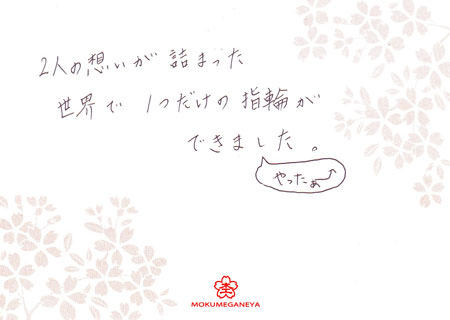 2人の想いが詰まった
世界で1つだけの指輪が
できました。
やったぁ↗
MOKUMEGANEYA